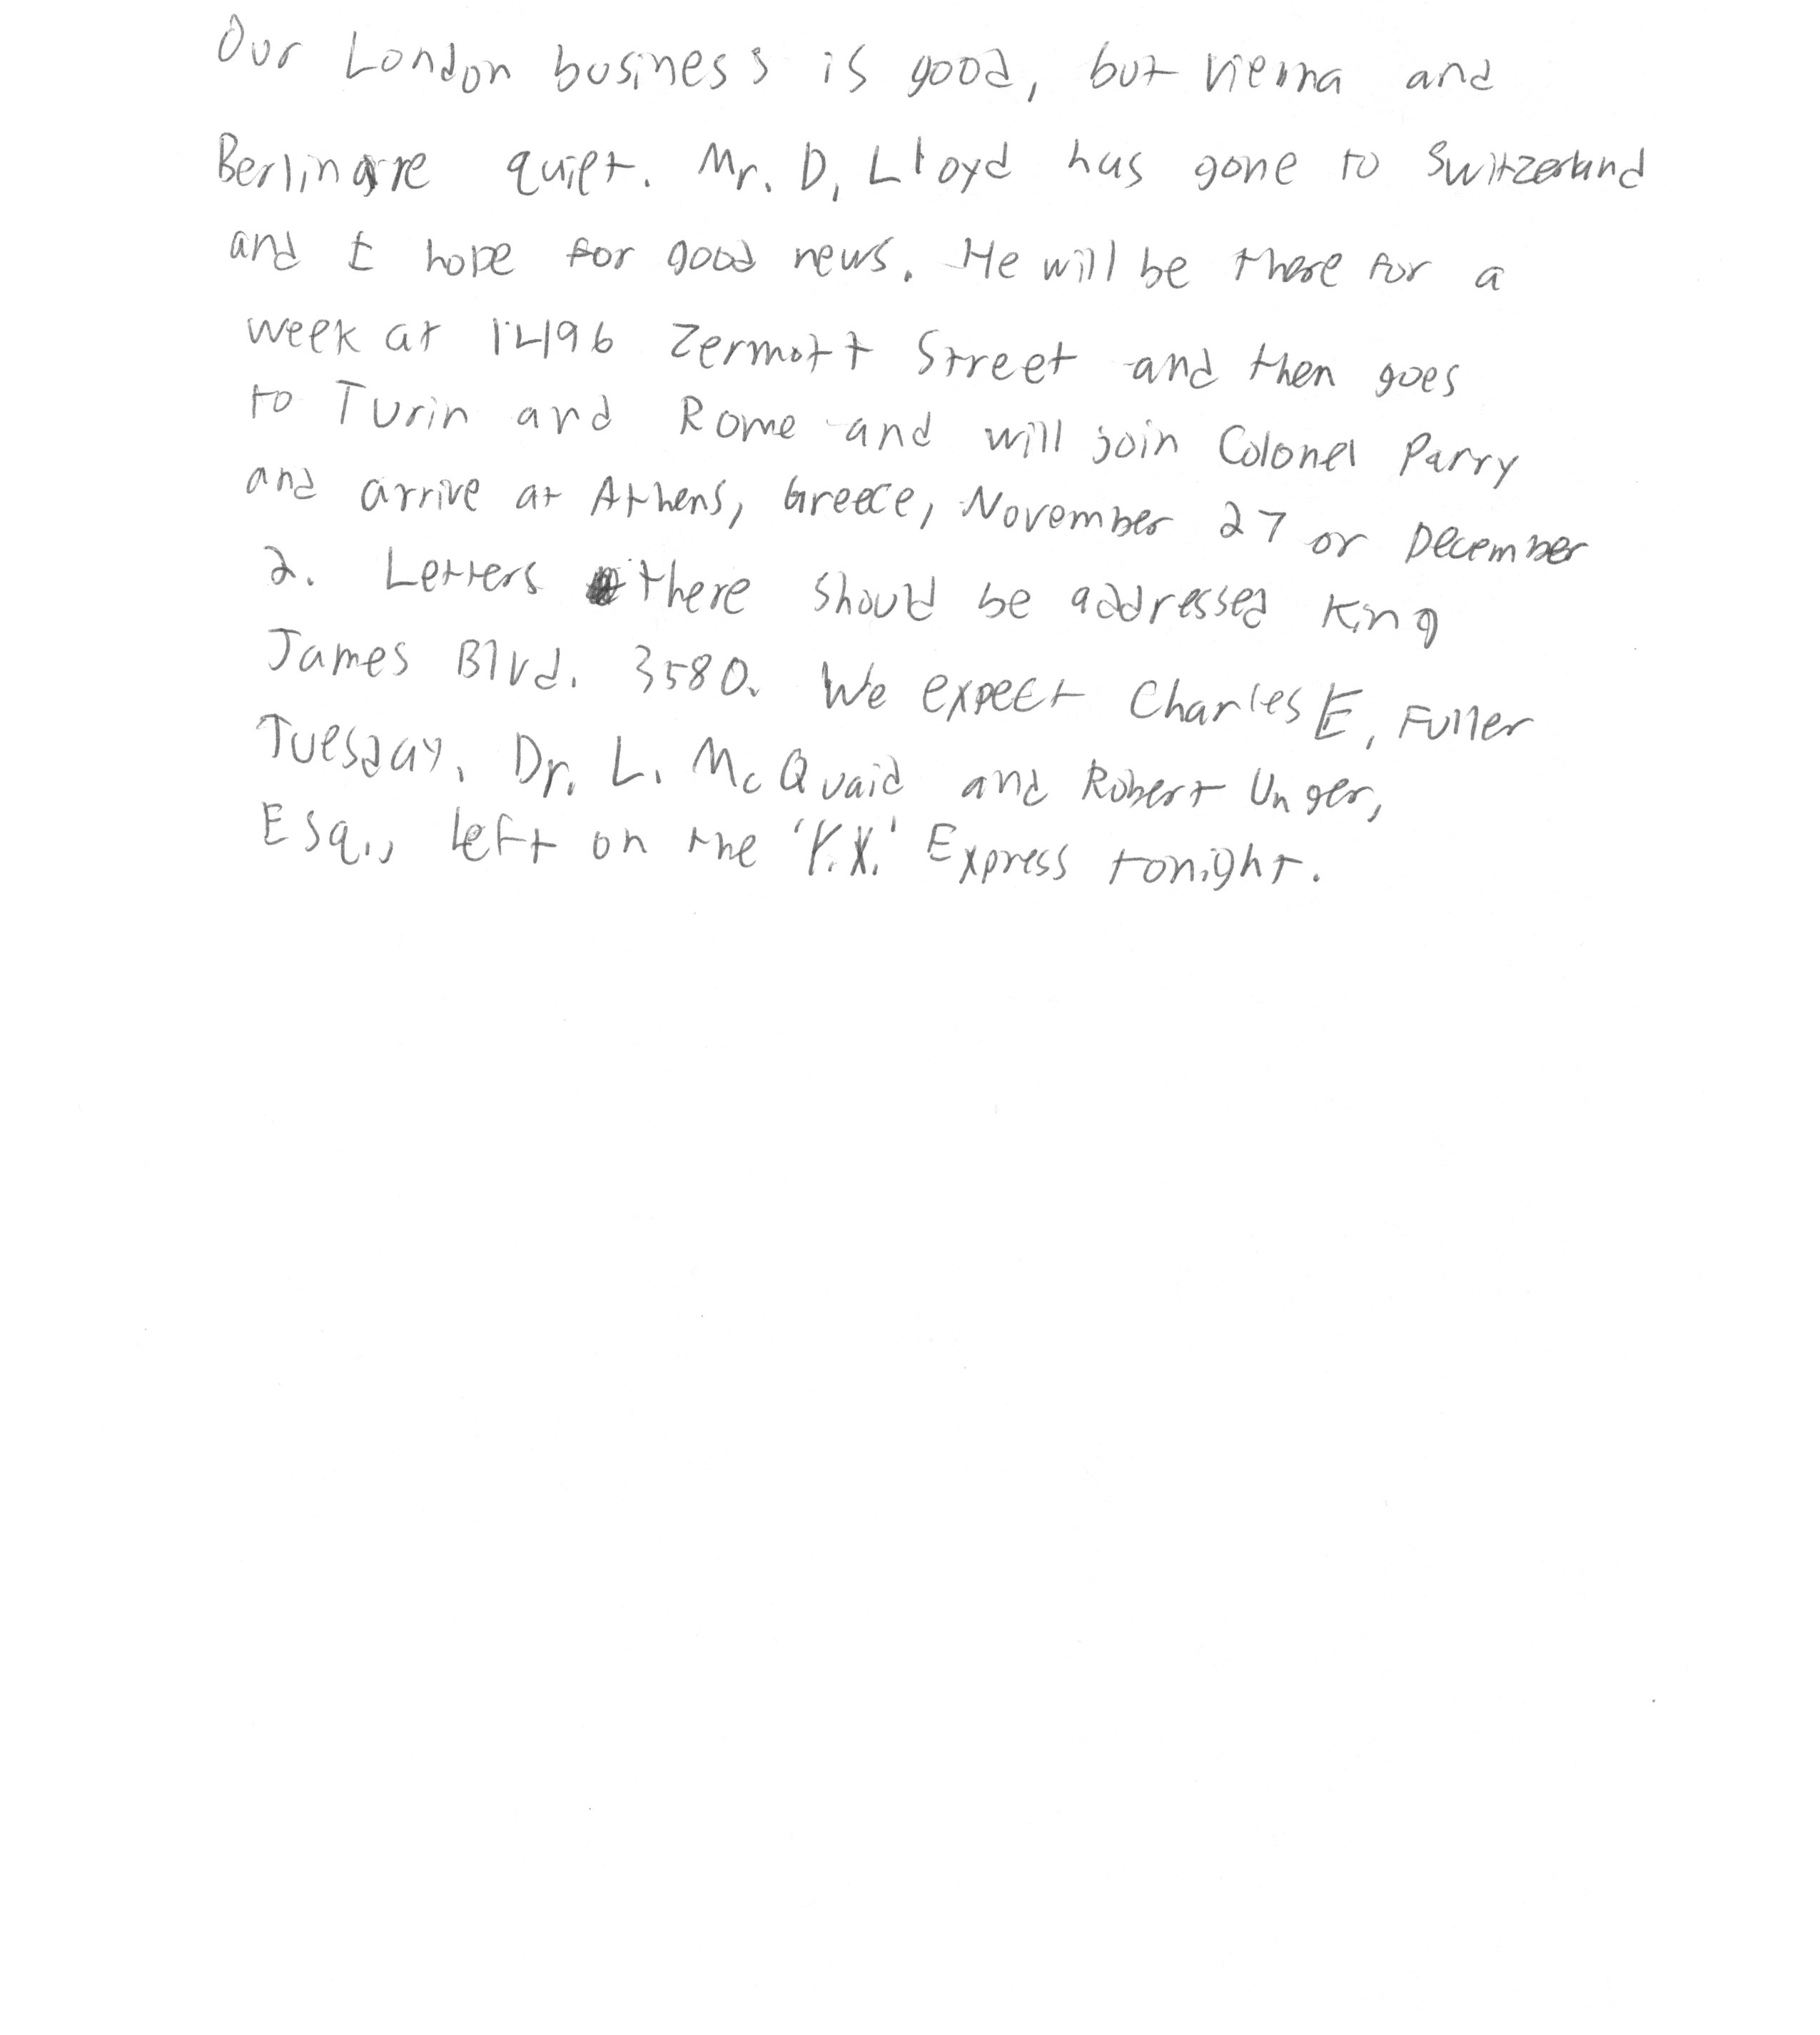 Our London business is good, but Vienna and
Berlin are quiet. Mr. D. Lloyd has gone to Switzerland
and I hope for good news. He will be there for a
week at 1496 Zermott Street and then goes
to Turin and Rome and will join Colonel Parry
and arrive at Athens, Greece, November 27 or December
2. Letters there should be addressed King
James Blvd. 3580. We expect Charles E. Fuller
Tuesday. Dr. L. McQuaid and Robert Unger,
Esq., left on the 'Y.X.' Express tonight.